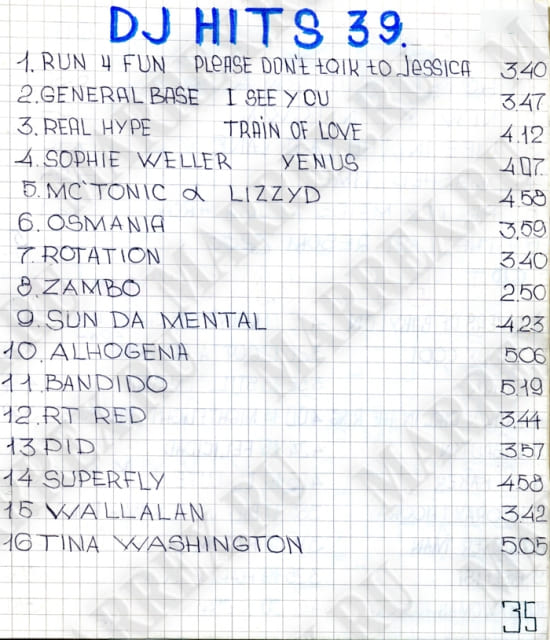 DJ HITS 39.
1. RUN 4 FUN PLEASE DON't tAlK to JESSICA 3.40
2. GENERAL BASE I SEE YOU 3.47
3. REAL HYPE TRAIN OF LOVE 4.12
4. SOPHIE WELLER VENUS 4.07
5. MC'TONIC & LIZZYD 4.58
6. OSMANIA 3.59
7. ROTATION 3.40
8. ZAMBO 2.50
9. SUN DA MENTAL 4.23
10. ALHOGENA 5.06
11. BANDIDO 5.19
12. RT RED 3.44
13 PID 3.57
14 SUPERFLY 4.58
15 WALLALAN 3.42
16 TINA WASHINGTON 5.05
35
MARREX.RU